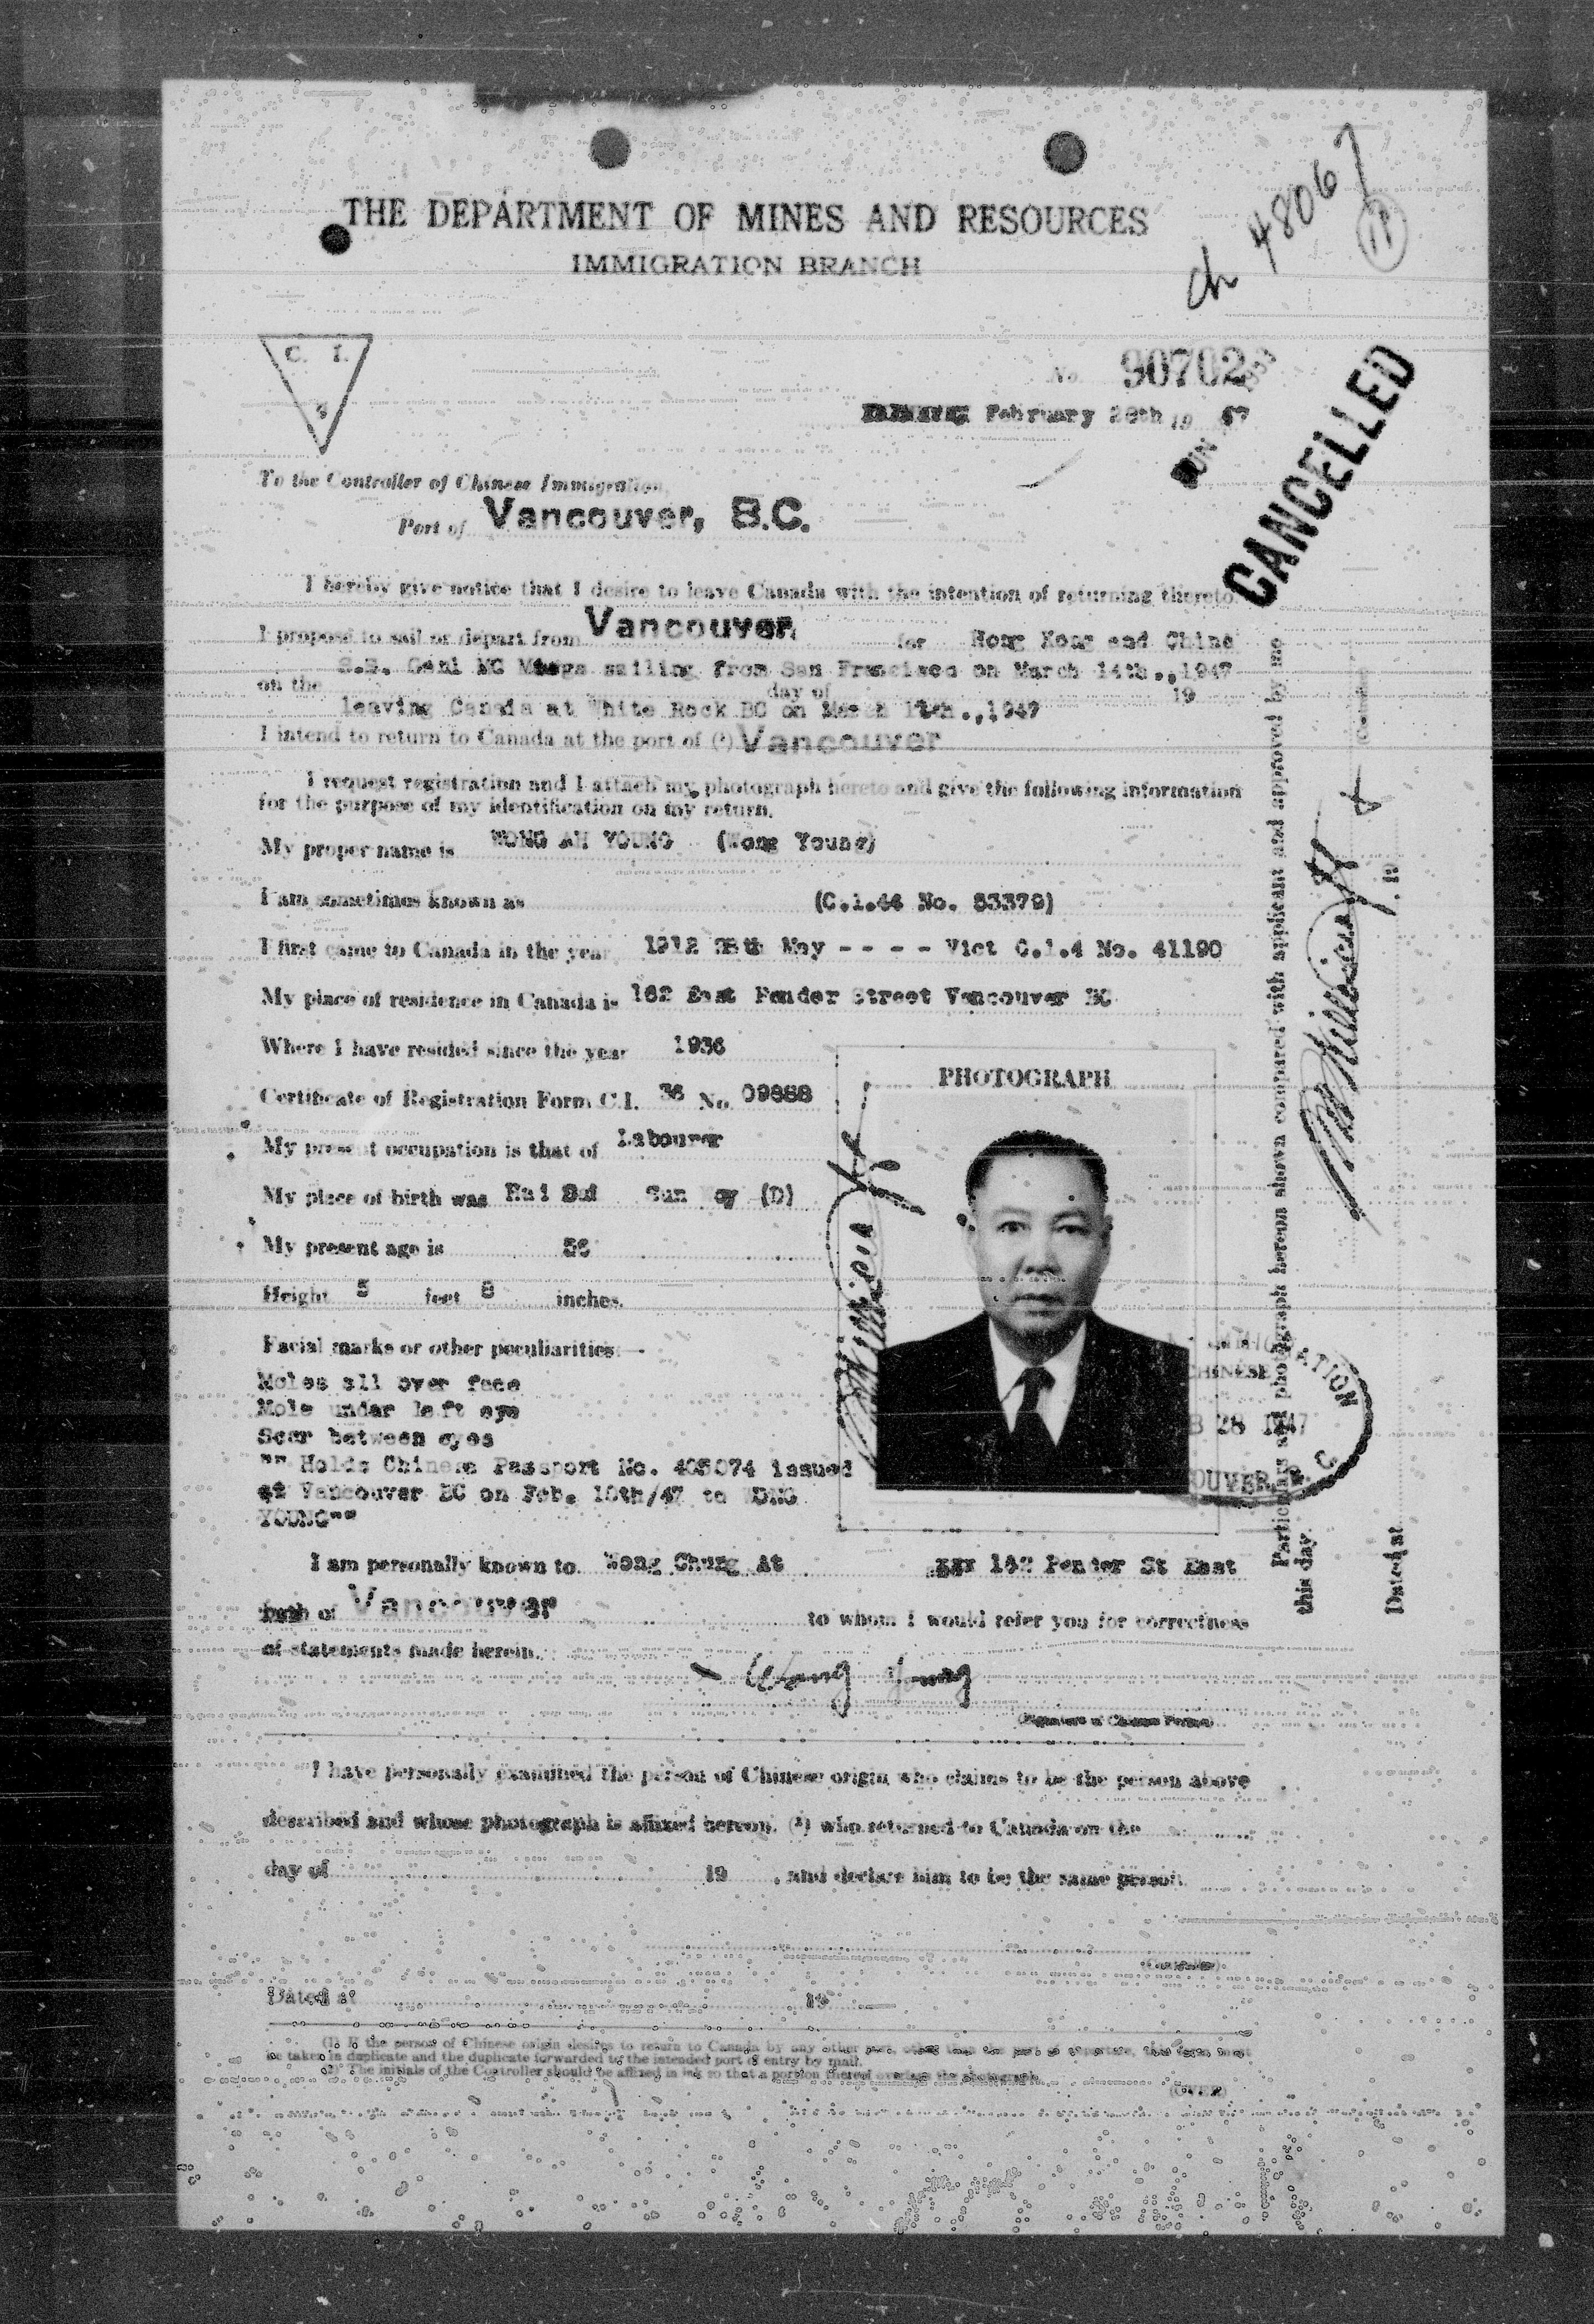 ch 48067
11
THE DEPARTMENT OF MINES AND RESOURCES
IMMIGRATION BRANCH
C. I.
9
No. 90702
February 28th 19 47
JUN
CANCELLED
To the Controller of Chinese Immigration,
Port of Vancouver, B.C.
I hereby give notice that I desire to leave Canada with the intention of returning thereto.
I propose to sail or depart from Vancouver, for Hong Kong and China
S.S. sailing from San Francisco on March 14th.,1947
on the day of 19
leaving Canada at White Rock BC on March .,1947
I intend to return to Canada at the port of (¹) Vancouver
I request registration and I attach my photograph hereto and give the following information
for the purpose of my identification on my return.
My proper name is WONG AH YOUNG (Wong Young)
I am sometimes known as (C.I.44 No. 53379)
I first came to Canada in the year 1912 May - - - - Vict C.I.4 No. 41190
My place of residence in Canada is 162 East Pender Street Vancouver BC
Where I have resided since the year 1936
Certificate of Registration Form C.I. 36 No. 09888
My present occupation is that of Labourer
My place of birth was Sun (D)
My present age is
Height 5 feet 8 inches.
Facial marks or other peculiarities:—
Moles all over face
Mole under left eye
Scar between eyes
"" Holds Chinese Passport No. 405074 issued
at Vancouver BC on Feb. 10th/47 to WONG
YOUNG""
PHOTOGRAPH
IMMIGRATION
CHINESE
B 28 1947
OUVER, B. C.
I am personally known to Wong Chung At Pender St East
of Vancouver to whom I would refer you for correctness
of statements made herein.
Wong Young
(Signature of Chinese Person)
I have personally examined the person of Chinese origin who claims to be the person above
described and whose photograph is affixed hereon, (²) who returned to Canada on the
day of 19 , and declare him to be the same person.
(Controller)
Dated at 19
(1) If the person of Chinese origin desires to return to Canada by any other port, other than the port of departure, this form must
be taken in duplicate and the duplicate forwarded to the intended port of entry by mail.
(2) The initials of the Controller should be affixed in ink so that a portion thereof overlaps the photograph.
(OVER)
Particulars and photograph hereon shown compared with applicant and approved by me
this day
19
Dated at